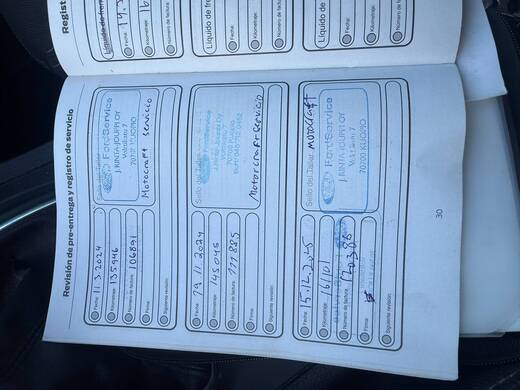 Revisión de pre-entrega y registro de servicio
Fecha: 11.3.2024
Kilometraje: 135946
Número de factura: 106891
Firma:
Siguiente revisión:
Sello del Taller
FordService
J. RINTA-JOUPPI OY
70700 KUOPIO
Motorcraft servicio
Fecha:
Kilometraje: 145045
Número de factura: 111885
Firma:
Siguiente revisión:
FordService
Motorcraft servicio
Fecha: 15.12.2025
Kilometraje: 161101
Número de factura: 120386
Firma:
Siguiente revisión:
Sello del Taller Motorcraft
FordService
J. RINTA-JOUPPI OY
70700 KUOPIO
30
Regist
Líquido de fren
Fecha:
Kilometraje:
Número de factura
Líquido de fre
Fecha:
Kilometraje:
Número de
Líquido de
Fecha:
Kilometraje:
Número de